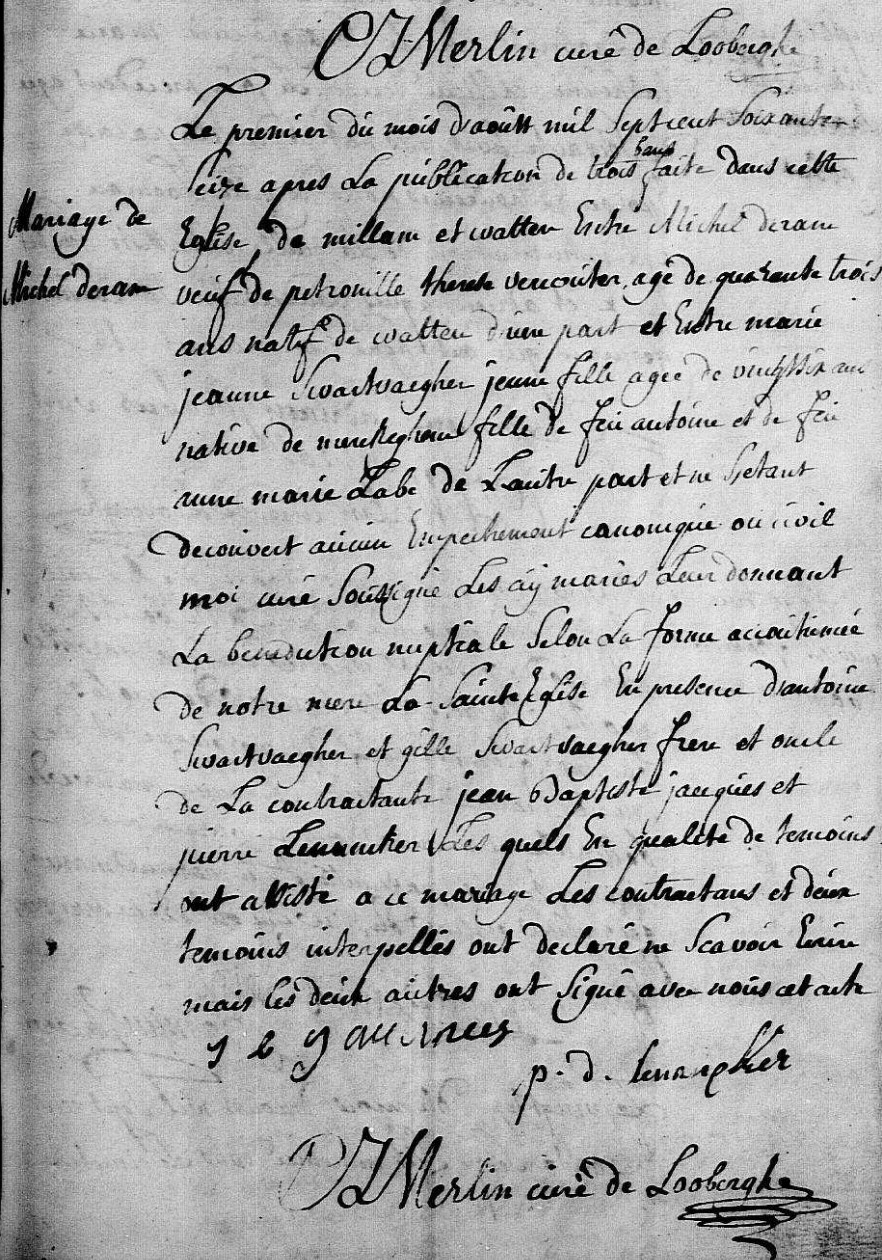 Merlin curé de Looberghe
Le premier du mois d'aoûtt mil Septcent Soixante
seize apres La publication de trois bans faite dans cette
Mariage de
Michel deram
Eglise de millam et watten Entre Michel deram
veuf de petronille therese vercouter, agé de quarante trois
ans natif de watten d'une part et Entre marie
jeanne Swartvaegher jeune fille agée de vingtsix ans
native de merckeghem fille de feu antoine et de feu
anne marie Labe de Lautre part et ne S'etant
decouvert aucun Empechement canonique ou civil
moi curé Soussigné Les aÿ mariés Leur donnant
La benediction nuptiale Selon La forme accoutumée
de notre mere La Sainte Eglise En presence d'antoine
Swartvaegher et gille Swartvaegher frere et oncle
de La contractante jean Baptiste jacques et
pierre Lenancker Les quels En qualité de temoins
ont assisté a ce mariage Les contractans et deux
temoins interpellés ont declaré ne Scavoir Ecrire
mais les deux autres ont Signé avec nous cet acte
p. d. lenancker
Merlin curé de Looberghe